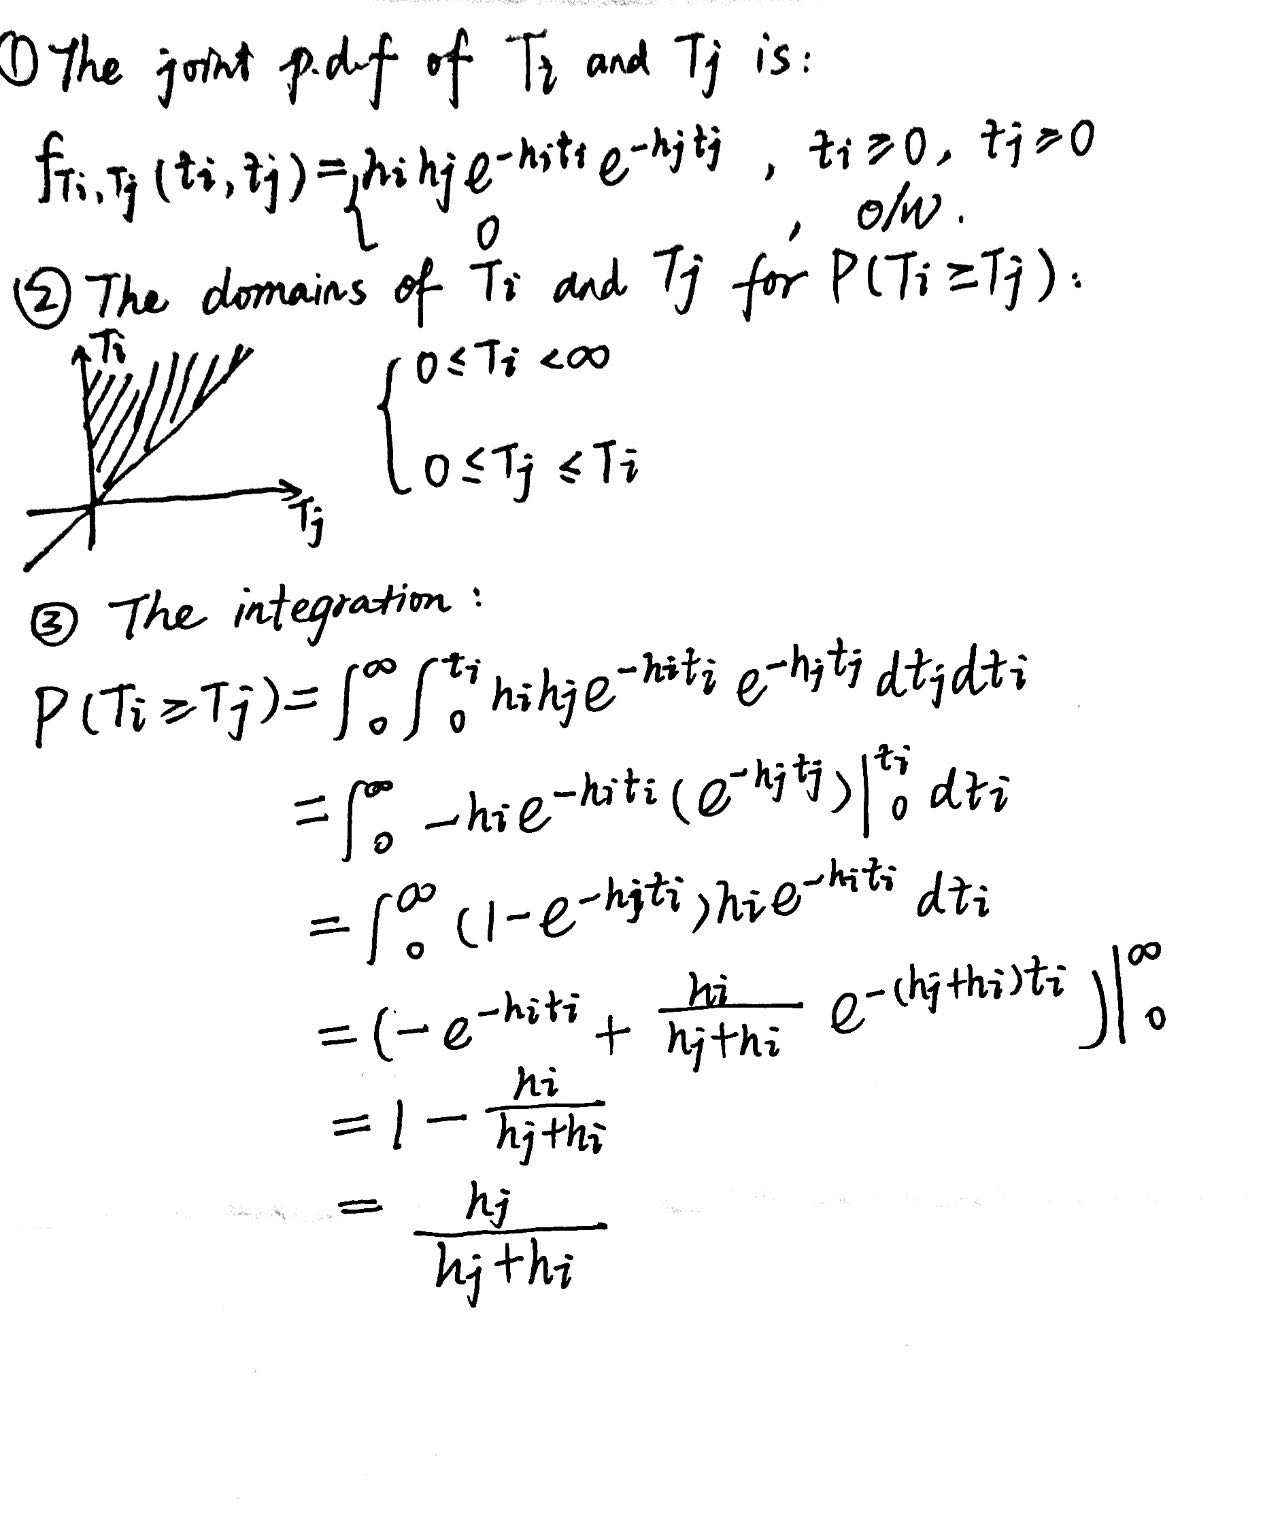 ① The joint p.d.f of Ti and Tj is:
fTi,Tj (ti,tj) = { hi hj e^-hiti e^-hjtj , ti ≥ 0, tj ≥ 0
0 , o/w.
② The domains of Ti and Tj for P(Ti ≥ Tj):
Ti
0 ≤ Ti < ∞
0 ≤ Tj ≤ Ti
Tj
③ The integration:
P(Ti ≥ Tj) = ∫_0^∞ ∫_0^ti hihje^-hiti e^-hjtj dtjdti
= ∫_0^∞ -hie^-hiti (e^-hjtj)|_0^ti dti
= ∫_0^∞ (1-e^-hjti)hie^-hiti dti
= (-e^-hiti + hi/(hj+hi) e^-(hj+hi)ti)|_0^∞
= 1 - hi/(hj+hi)
= hj/(hj+hi)